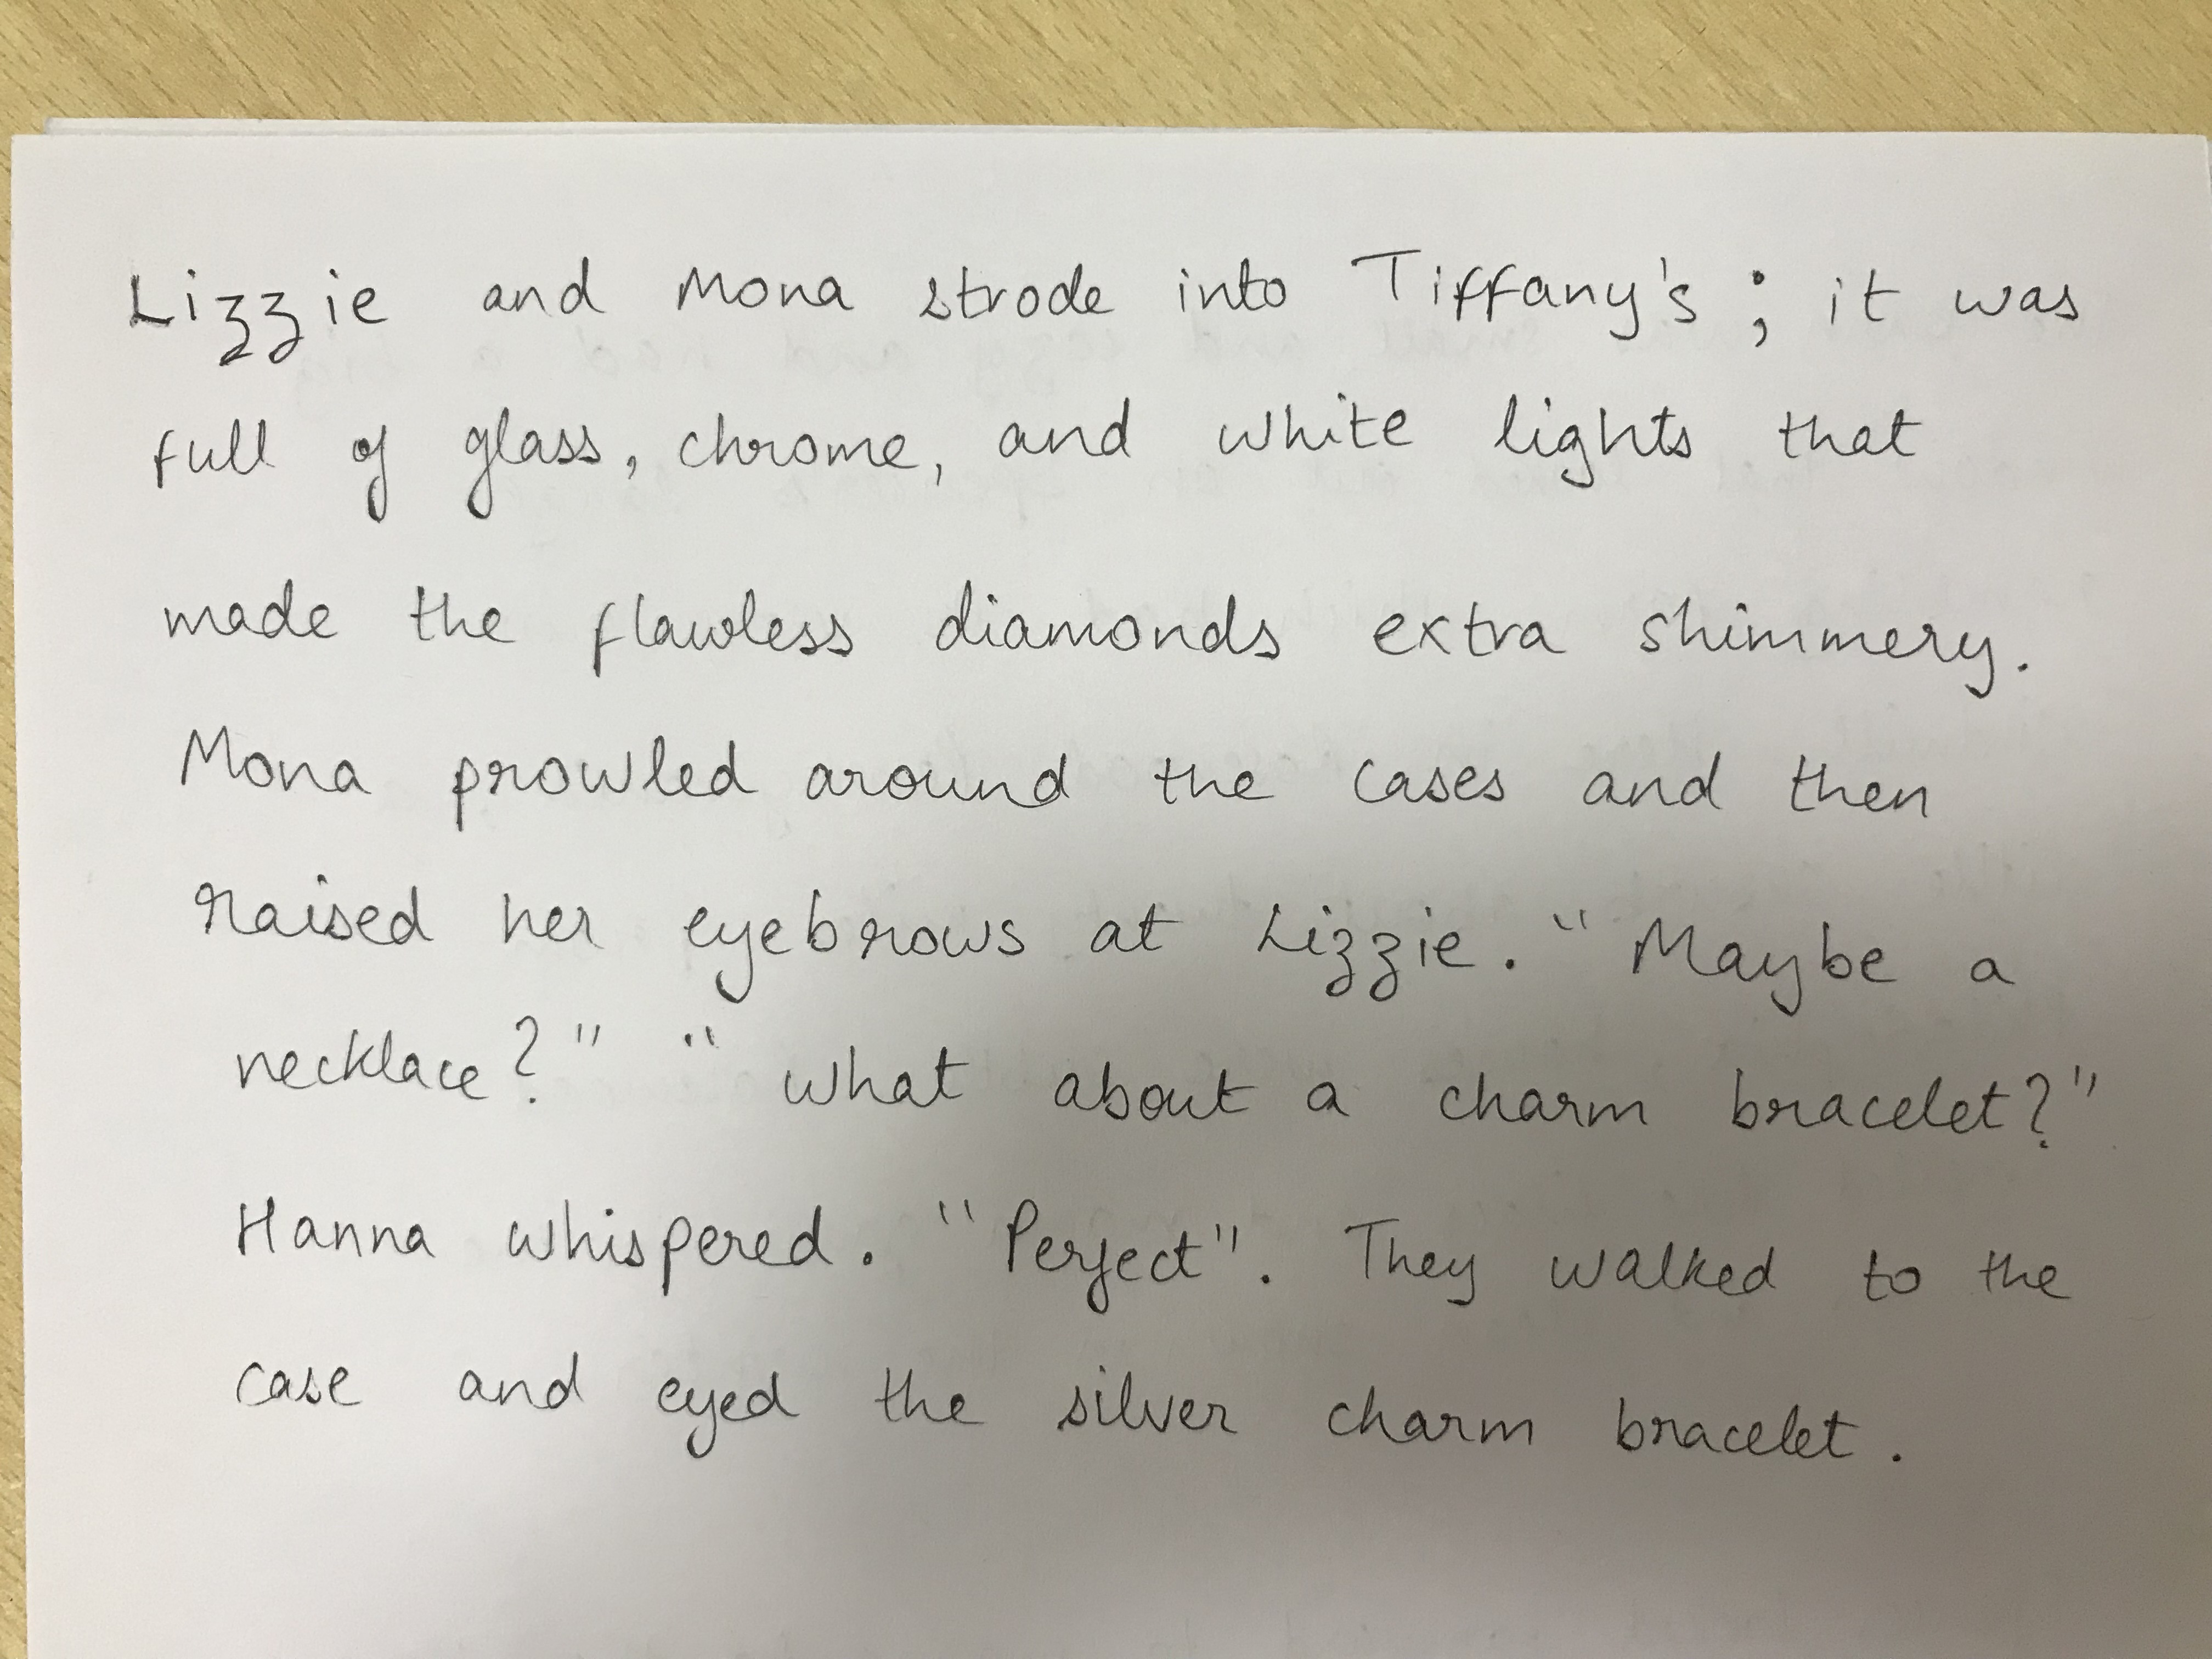 Lizzie and Mona strode into Tiffany's ; it was
full of glass, chrome, and white lights that
made the flawless diamonds extra shimmery.
Mona prowled around the cases and then
raised her eyebrows at Lizzie. "Maybe a
necklace?" "what about a charm bracelet?"
Hanna whispered. "Perfect". They walked to the
case and eyed the silver charm bracelet.